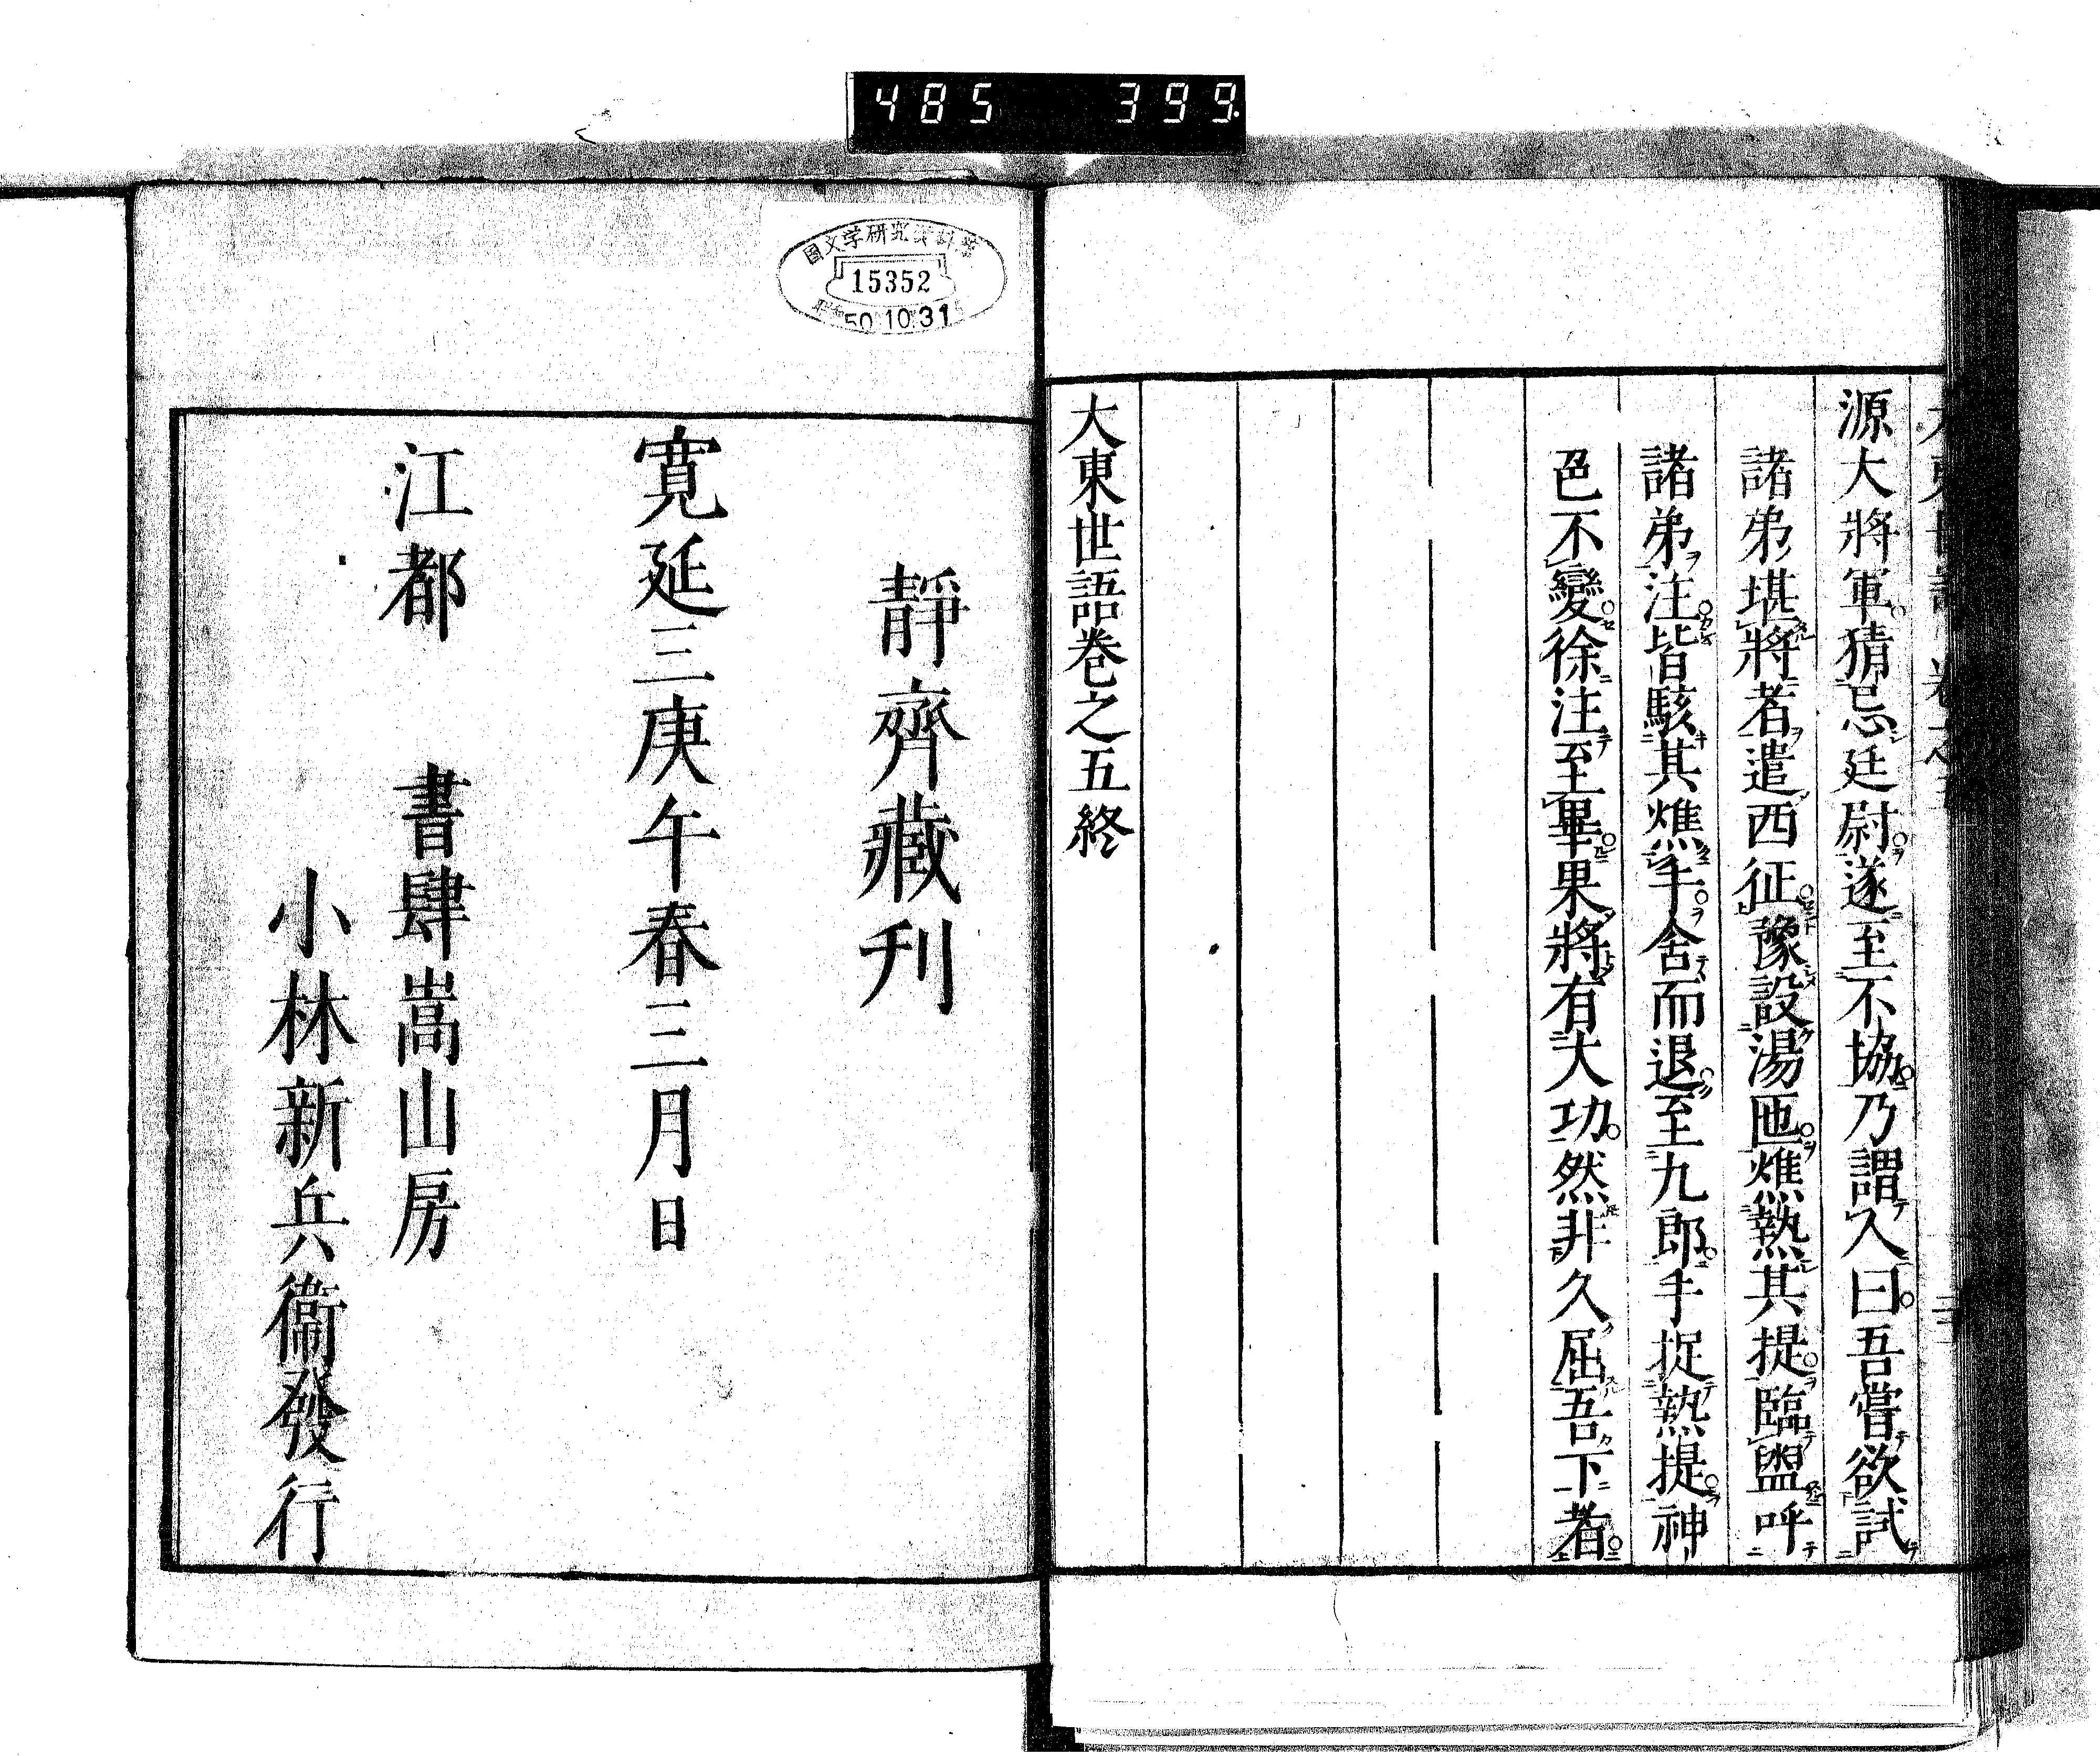 485 399
源大將軍猜忌廷尉遂至不協乃謂人曰吾嘗欲試
諸弟堪將者遣西征豫設湯匜燋熱其提臨盥呼
諸弟注皆駭其燋手舍而退至九郎手捉熱提神
色不變徐注至畢果將有大功然非久屈吾下者
大東世語卷之五終
國文学研究資料館
15352
50.10.31
靜齊藏刊
寛延三庚午春三月日
江都 書肆嵩山房
小林新兵衞發行